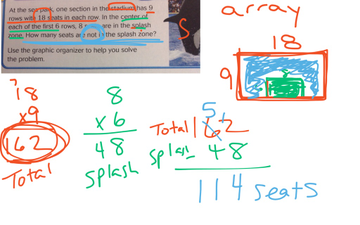 At the sea park, one section in the stadium has 9
rows with 18 seats in each row. In the center of
each of the first 6 rows, 8 seats are in the splash
zone. How many seats are not in the splash zone?
Use the graphic organizer to help you solve
the problem.
array
18
9
S
18
x9
162
Total
8
x6
48
splash
Total 162
splash 48
114 seats